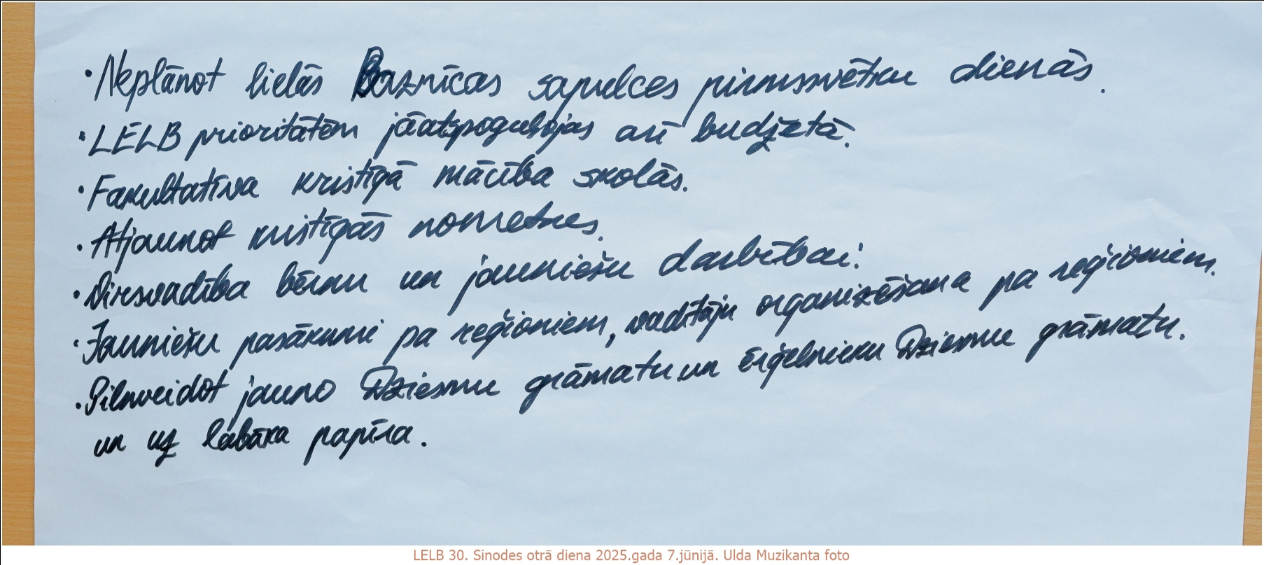 • Neplānot lielās Baznīcas sapulces pirmssvētku dienās.
• LELB prioritātēm jāatspoguļojas arī budžetā.
• Fakultatīva kristīgā mācība skolās.
• Atjaunot kristīgās nometnes.
• Dievvadība bērnu un jauniešu darbībai!
• Jauniešu pasākumi pa reģioniem, vadītāju organizēšana pa reģioniem.
• Pilnveidot jauno Dziesmu grāmatu un ērģelnieku Dziesmu grāmatu.
un uz labāka papīra.
LELB 30. Sinodes otrā diena 2025.gada 7.jūnijā. Ulda Muzikanta foto